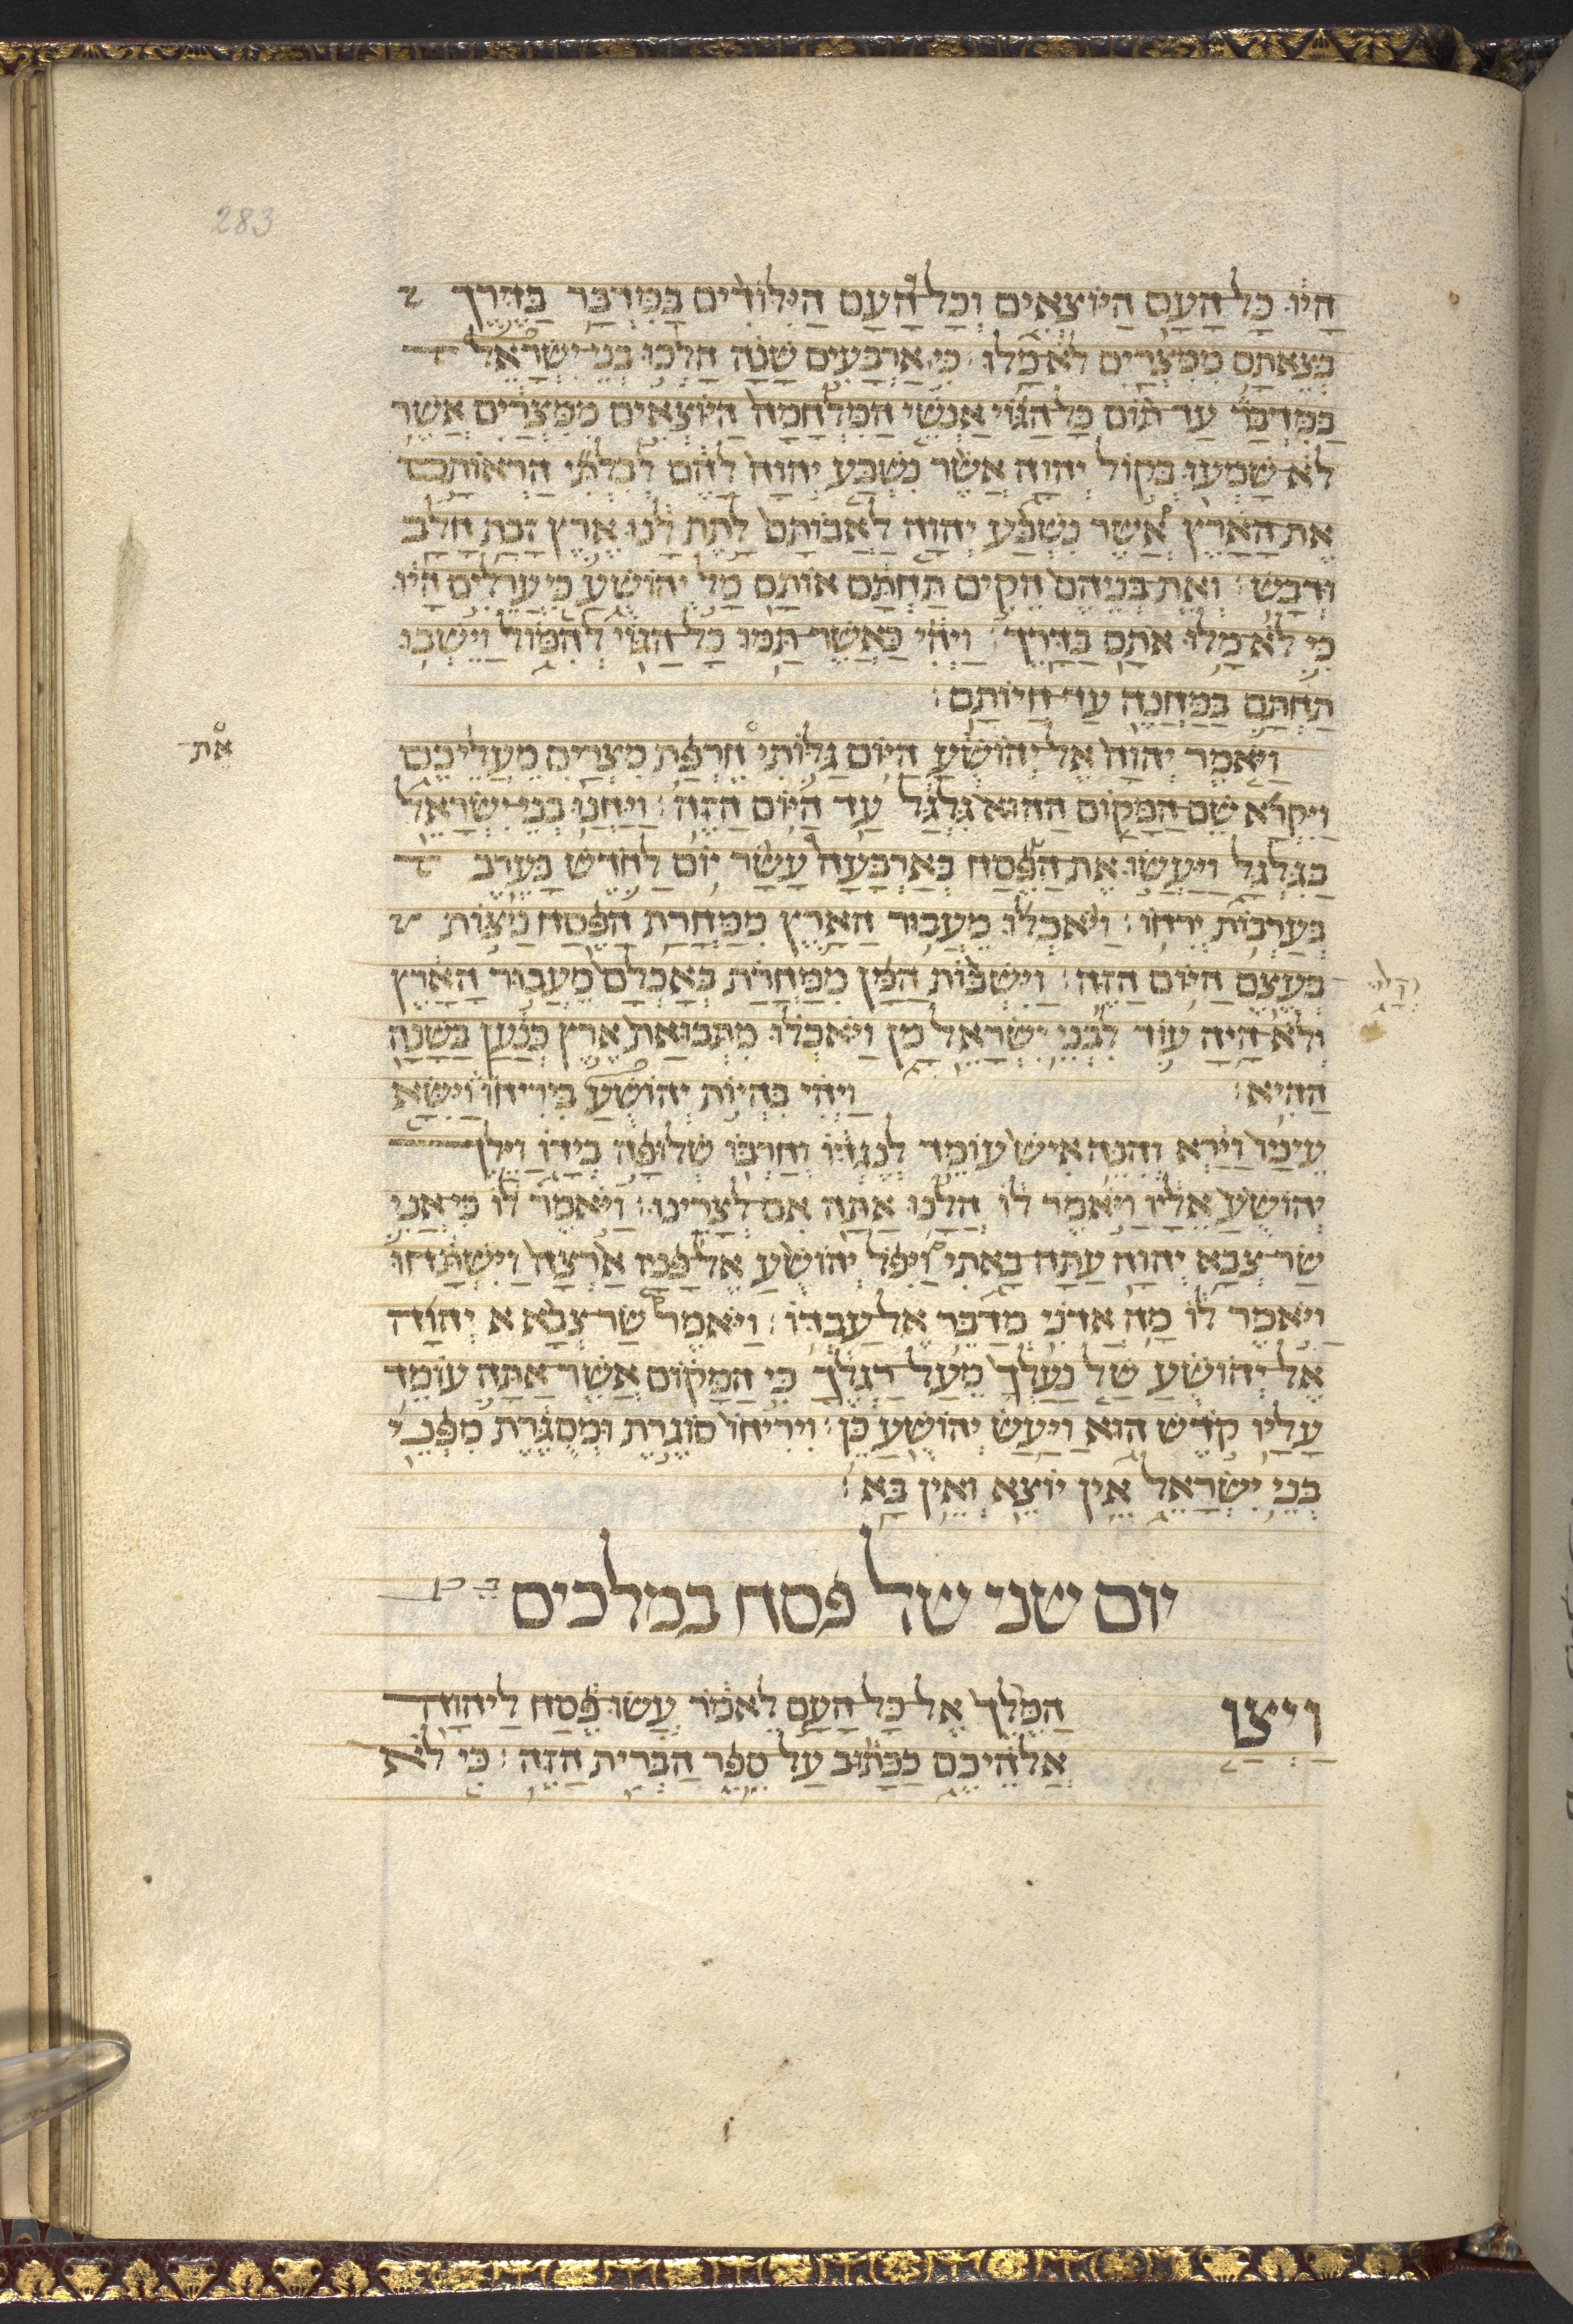 283
הָיוּ כָּל הָעָם הַיּוֹצְאִים וְכָל הָעָם הַיִּלּוֹדִים בַּמִּדְבָּר בַּדֶּרֶךְ
בְּצֵאתָם מִמִּצְרַיִם לֹא מָלוּ׃ כִּי אַרְבָּעִים שָׁנָה הָלְכוּ בְנֵי יִשְׂרָאֵל
בַּמִּדְבָּר עַד תּוֹם כָּל הַגּוֹי אַנְשֵׁי הַמִּלְחָמָה הַיּוֹצְאִים מִמִּצְרַיִם אֲשֶׁר
לֹא שָׁמְעוּ בְּקוֹל יְהוָה אֲשֶׁר נִשְׁבַּע יְהוָה לָהֶם לְבִלְתִּי הַרְאוֹתָם
אֶת הָאָרֶץ אֲשֶׁר נִשְׁבַּע יְהוָה לַאֲבוֹתָם לָתֶת לָנוּ אֶרֶץ זָבַת חָלָב
וּדְבָשׁ׃ וְאֶת בְּנֵיהֶם הֵקִים תַּחְתָּם אוֹתָם מָל יְהוֹשֻׁעַ כִּי עֲרֵלִים הָיוּ
כִּי לֹא מָלוּ אֹתָם בַּדָּרֶךְ׃ וַיְהִי כַּאֲשֶׁר תַּמּוּ כָל הַגּוֹי לְהִמּוֹל וַיֵּשְׁבוּ
תַחְתָּם בַּמַּחֲנֶה עַד חֲיוֹתָם׃
וַיֹּאמֶר יְהוָה אֶל יְהוֹשֻׁעַ הַיּוֹם גַּלּוֹתִי חֶרְפַּת מִצְרַיִם מֵעֲלֵיכֶם
אֶת
וַיִּקְרָא שֵׁם הַמָּקוֹם הַהוּא גִּלְגָּל עַד הַיּוֹם הַזֶּה׃ וַיַּחֲנוּ בְנֵי יִשְׂרָאֵל
בַּגִּלְגָּל וַיַּעֲשׂוּ אֶת הַפֶּסַח בְּאַרְבָּעָה עָשָׂר יוֹם לַחֹדֶשׁ בָּעֶרֶב
בְּעַרְבוֹת יְרִחוֹ׃ וַיֹּאכְלוּ מֵעֲבוּר הָאָרֶץ מִמָּחֳרַת הַפֶּסַח מַצּוֹת
בְּעֶצֶם הַיּוֹם הַזֶּה׃ וַיִּשְׁבּוֹת הַמָּן מִמָּחֳרָת בְּאָכְלָם מֵעֲבוּר הָאָרֶץ
וְלֹא הָיָה עוֹד לִבְנֵי יִשְׂרָאֵל מָן וַיֹּאכְלוּ מִתְּבוּאַת אֶרֶץ כְּנַעַן בַּשָּׁנָה
הַהִיא׃ וַיְהִי בִּהְיוֹת יְהוֹשֻׁעַ בִּירִיחוֹ וַיִּשָּׂא
עֵינָיו וַיַּרְא וְהִנֵּה אִישׁ עוֹמֵד לְנֶגְדּוֹ וְחַרְבּוֹ שְׁלוּפָה בְיָדוֹ וַיֵּלֶךְ
יְהוֹשֻׁעַ אֵלָיו וַיֹּאמֶר לוֹ הֲלָנוּ אַתָּה אִם לְצָרֵינוּ׃ וַיֹּאמֶר לוֹ כִּי אֲנִי
שַׂר צְבָא יְהוָה עַתָּה בָאתִי וַיִּפֹּל יְהוֹשֻׁעַ אֶל פָּנָיו אַרְצָה וַיִּשְׁתָּחוּ
וַיֹּאמֶר לוֹ מָה אֲדֹנִי מְדַבֵּר אֶל עַבְדּוֹ׃ וַיֹּאמֶר שַׂר צְבָא א יְהוָה
אֶל יְהוֹשֻׁעַ שַׁל נַעַלְךָ מֵעַל רַגְלֶךָ כִּי הַמָּקוֹם אֲשֶׁר אַתָּה עוֹמֵד
עָלָיו קֹדֶשׁ הוּא וַיַּעַשׂ יְהוֹשֻׁעַ כֵּן׃ וִירִיחוֹ סוֹגֶרֶת וּמְסֻגֶּרֶת מִפְּנֵי
בְּנֵי יִשְׂרָאֵל אֵין יוֹצֵא וְאֵין בָּא׃
יום שני של פסח במלכים
וַיְצַו הַמֶּלֶךְ אֶל כָּל הָעָם לֵאמֹר עֲשׂוּ פֶסַח לַיהוָה
אֱלֹהֵיכֶם כַּכָּתוּב עַל סֵפֶר הַבְּרִית הַזֶּה׃ כִּי לֹא